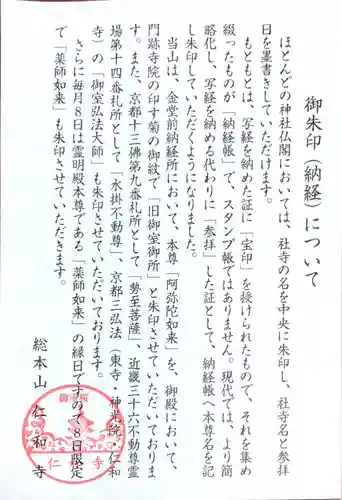 御朱印（納経）について
ほとんどの神社仏閣においては、社寺の名を中央に朱印し、社寺名と参拝
日を墨書きしていただけます。
もともとは、写経を納めた証に「宝印」を授けられたもので、それを集め
綴ったものが「納経帳」で、スタンプ帳ではありません。現代では、より簡
略化し、写経を納める代わりに「参拝」した証として、納経帳へ本尊名を記
し朱印していただくようになりました。
当山は、金堂前納経所において、本尊「阿弥陀如来」を、御殿において、
門跡寺院の印す菊の御紋で「旧御室御所」と朱印させていただいておりま
す。また、京都十三佛第九番札所として「勢至菩薩」、近畿三十六不動尊霊
場第十四番札所として「水掛不動尊」、京都三弘法（東寺・神光院・仁和
寺）の「御室弘法大師」も朱印させていただいております。
さらに毎月8日は霊明殿本尊である「薬師如来」の縁日ですので8日限定
で「薬師如来」も朱印させていただきます。
総本山 仁和寺
御室桜
仁和寺